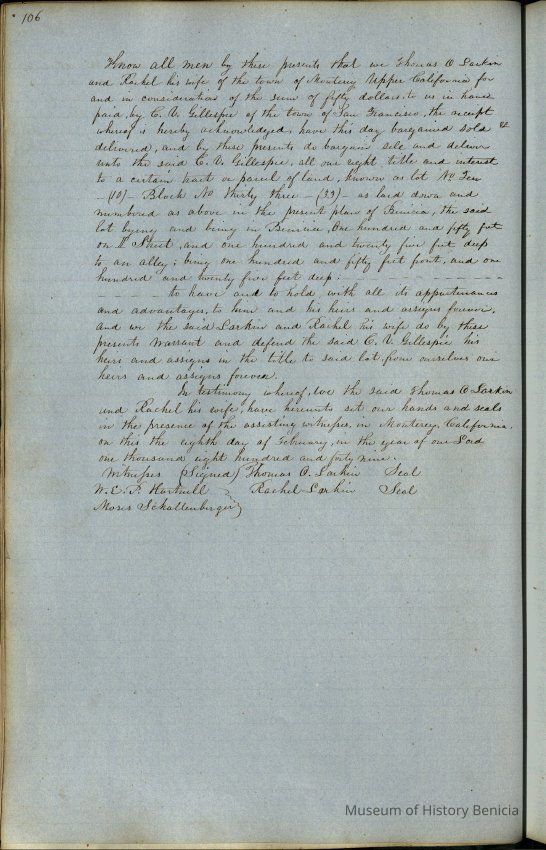 106
Know all men by these presents that we Thomas O Larkin
and Rachel his wife of the town of Monterey Upper California for
and in consideration of the sum of fifty dollars, to us in hand
paid, by C. V. Gillespie of the town of San Francisco, the receipt
whereof is hereby acknowledged, have this day bargained sold &
delivered, and by these presents do bargain sele and deliver
unto the said C. V. Gillespie, all our right title and interest
to a certain tract or parcel of land, known as lot No Ten
-(10)- Block No thirty three -(33)- as laid down and
numbered as above in the present plan of Benicia, the said
lot lying and being in Benicia, One hundred and fifty feet
on Street, and one hundred and twenty five feet deep
to an alley; being one hundred and fifty feet front, and one
hundred and twenty five feet deep.
to have and to hold, with all its appurtenances
and advantages, to him and his heirs and assigns forever,
and we the said Larkin and Rachel his wife do by these
presents warrant and defend the said C. V. Gillespie his
heirs and assigns in the title to said lot, from ourselves our
heirs and assigns forever.
In testimony whereof, we the said Thomas O Larkin
and Rachel his wife, have hereunto set our hands and seals
in the presence of the assisting witnesses, in Monterey, California,
on this the eighth day of February, in the year of our Lord
one thousand eight hundred and forty nine.
Witnesses (Signed) Thomas O. Larkin Seal
W. E. P. Hartnell } Rachel Larkin Seal
Moses Schallenberger }
Museum of History Benicia